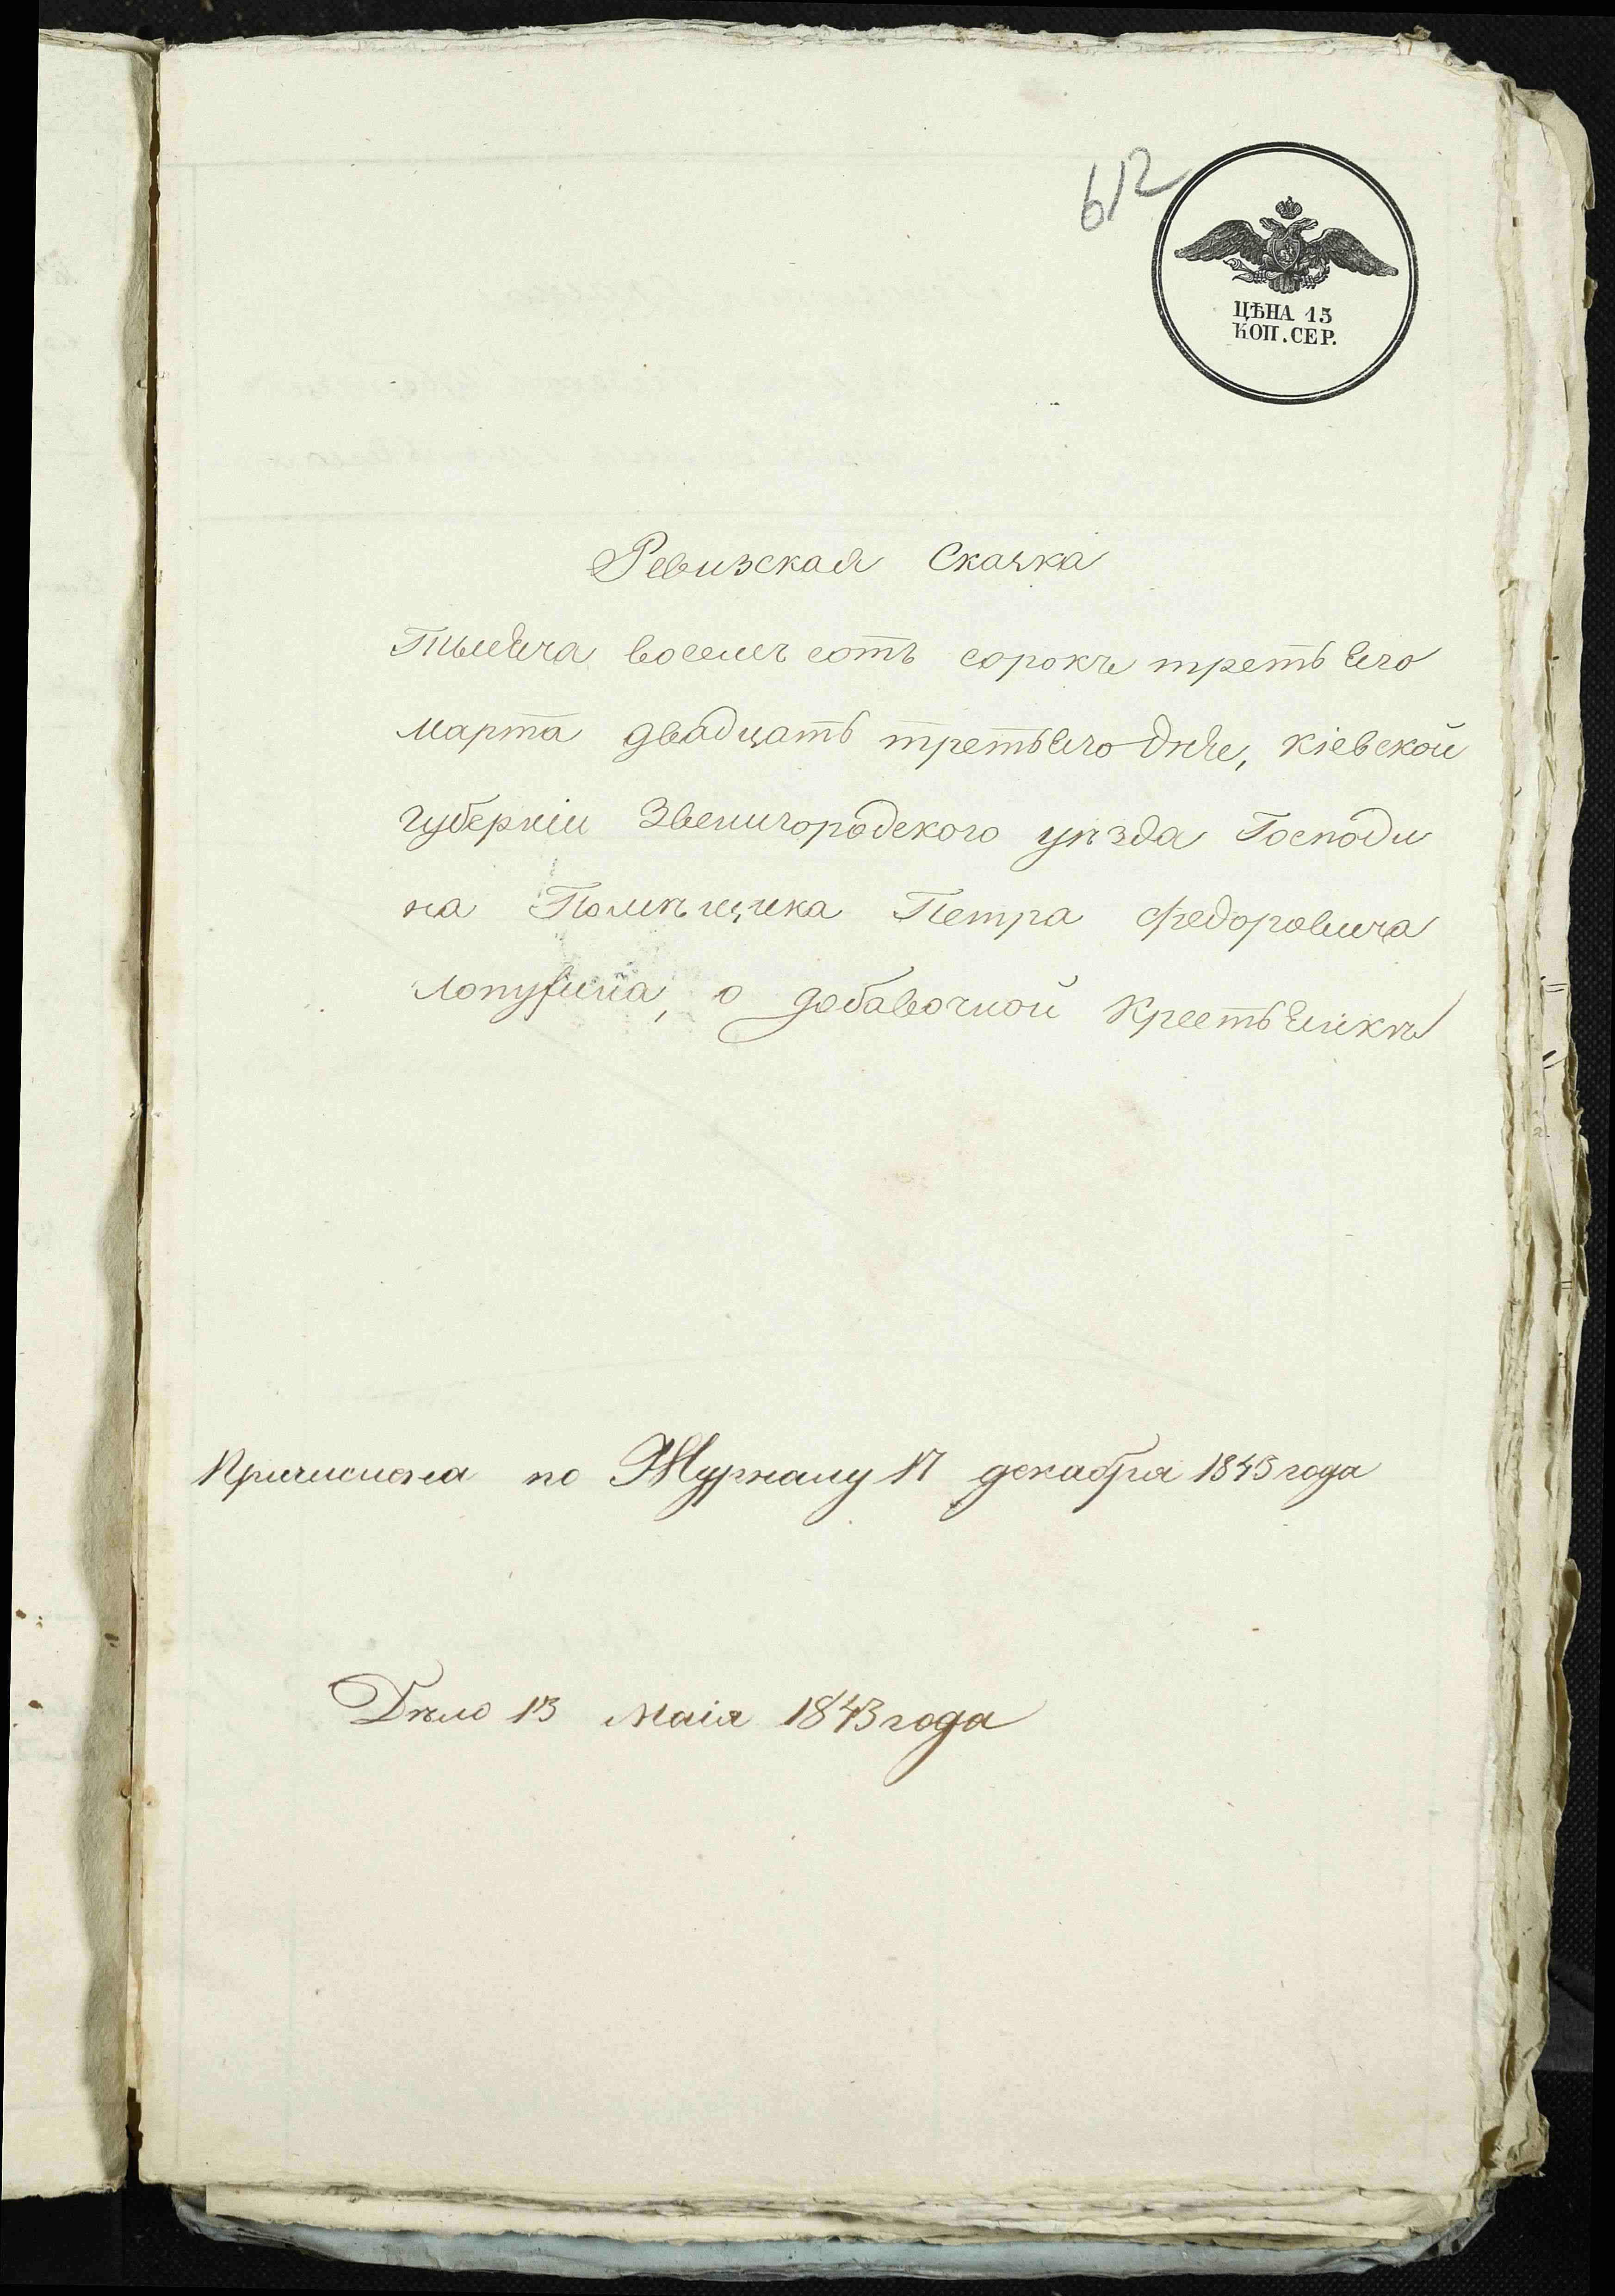 612
ЦѢНА 15
КОП. СЕР.
Ревизская Скаска
Тысяча восемъ сотъ сорокъ третьяго
марта двадцать третьяго дня, Кіевской
губерніи Звенигородского уѣзда Господи
на Помѣщика Петра Федоровича
Лопухина, о добавочной Крестьянкѣ
Причислена по Журналу 17 декабря 1843 года
Дѣло 13 Маія 1843 года